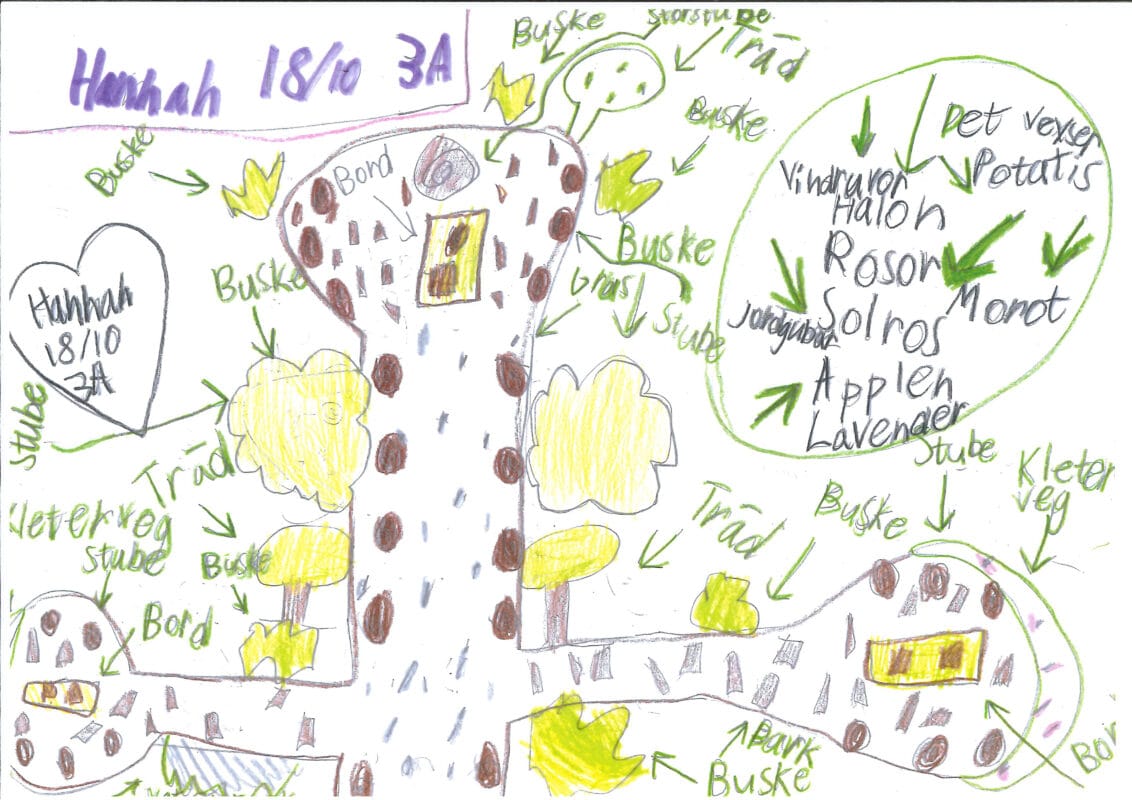 Hannah 18/10 3A
Buske
storstube
Träd
Buske
Buske
Bord
Det vexser
Potatis
Vindruvor
Halon
Rosor
Monot
Solros
Jordgubar
Äpplen
Lavender
Hannah
18/10
3A
Buske
Buske
Gräs
Stube
Stube
Träd
Kleterveg
stube
Buske
Bord
Träd
Buske
Stube
Kleter
veg
Bark
Buske
Bor